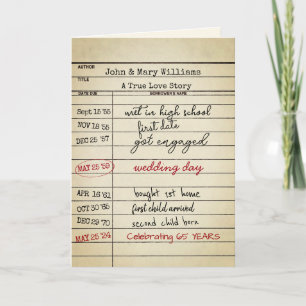 AUTHOR
John & Mary Williams
TITLE
A True Love Story
DATE DUE BORROWER'S NAME
Sept 15 '55 met in high school
NOV 18 '55 first date
DEC 25 '57 got engaged
MAY 25 '59 wedding day
APR 16 '61 bought 1st home
OCT 30 '65 first child arrived
DEC 29 '70 second child born
MAY 25 '24 Celebrating 65 YEARS